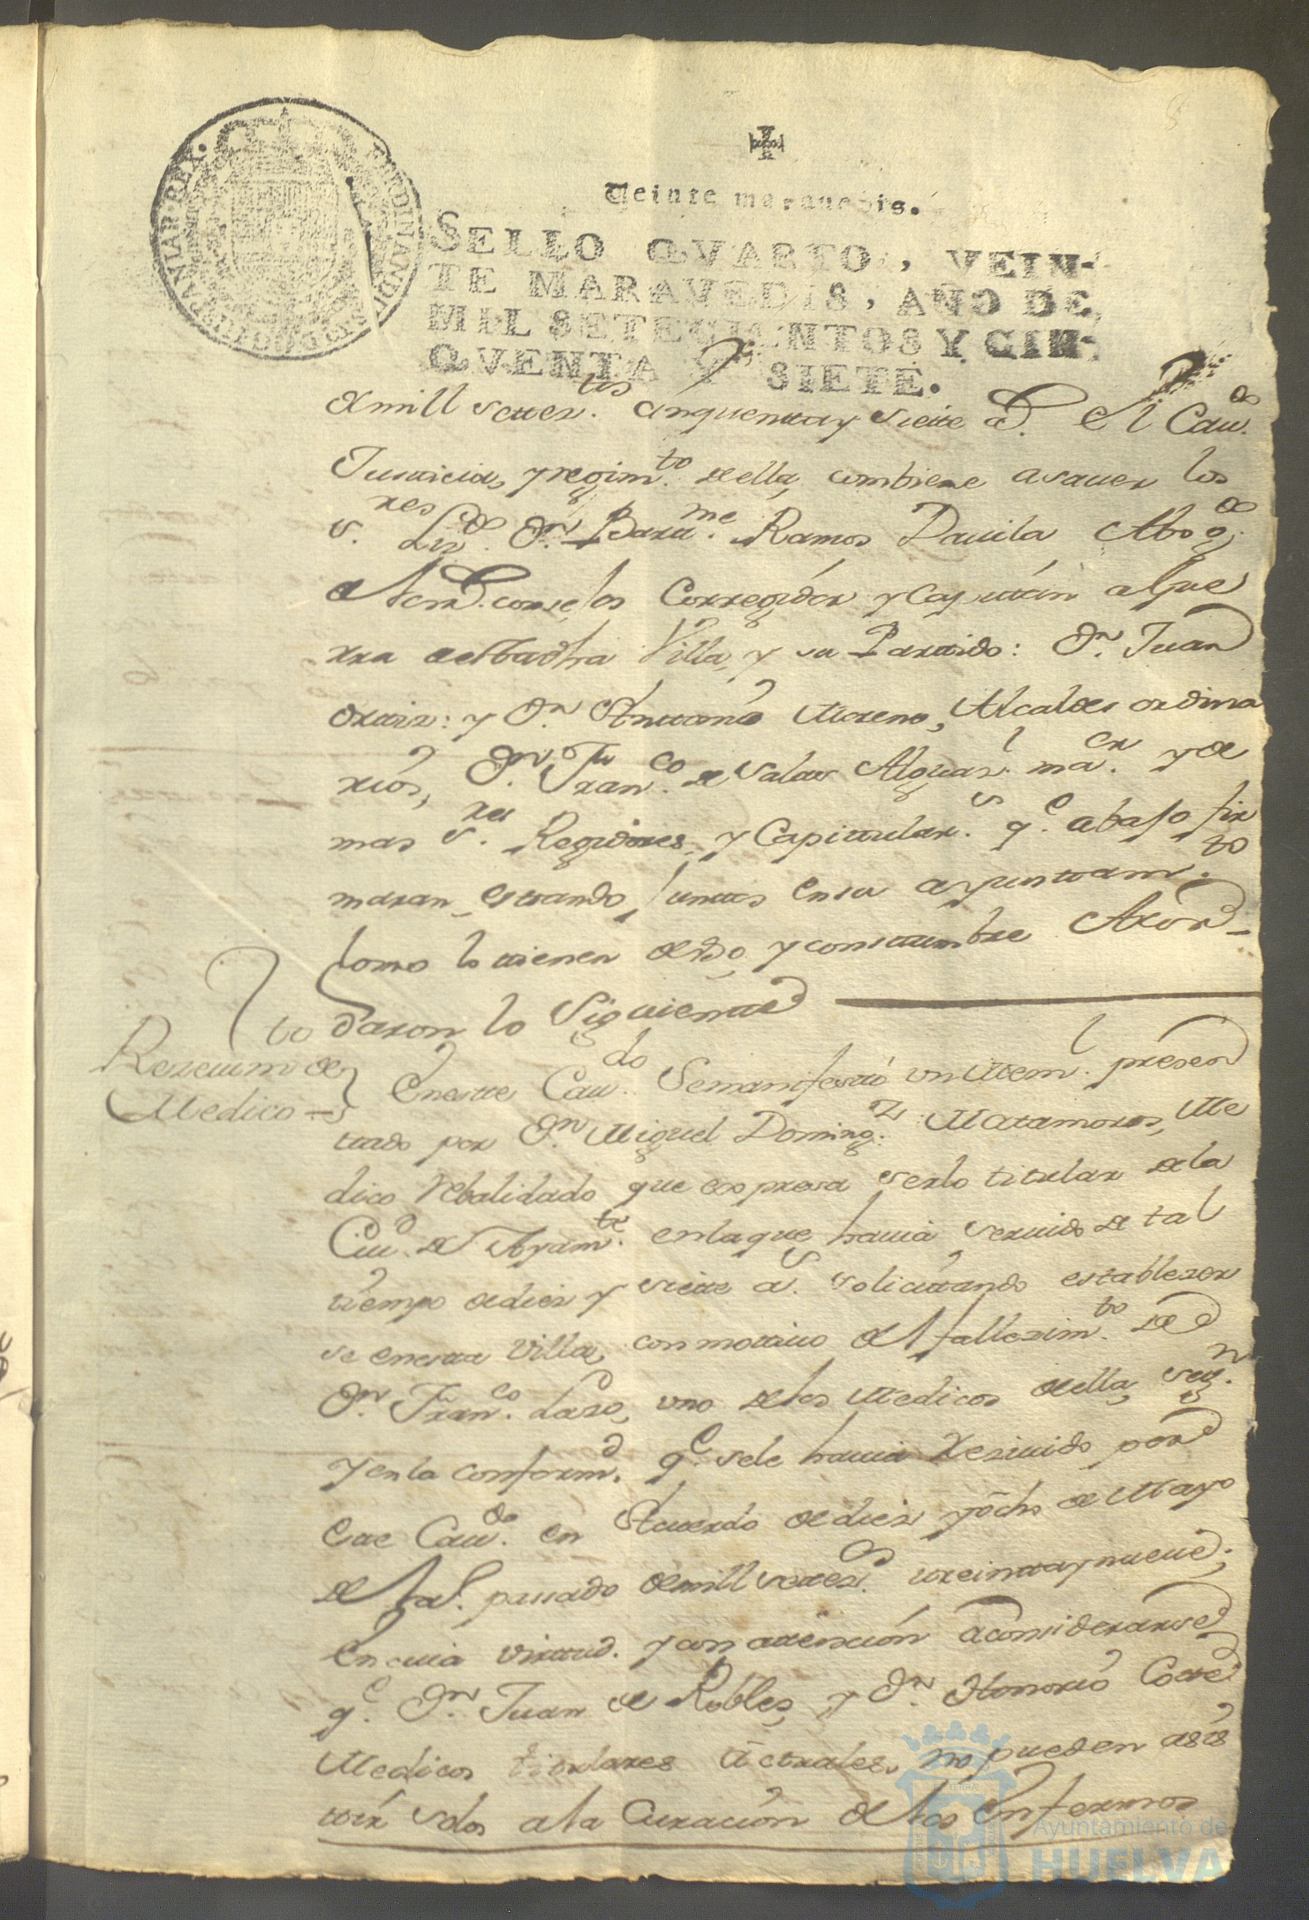 8
HISPANIAR·REX·
FERDINANDUS·VI·D·G·
Veinte marauedis.
SELLO QVARTO, VEIN-
TE MARAVEDIS, AÑO DE
MIL SETECIENTOS Y CIN-
QVENTA Y SIETE.
de mill setez.tos cinquenta y siete a.s El Cau.do
Justicia, y regim.to de ella, combiene a sauer los
s.res Liz.do D.n Bart.me Ramos Dauila Abog.do
de los R.s consejos Corregidor y Capitán a Gue
rra de esta d̃ha Villa, y su Partido: D.n Juan
ortiz: y D.n Antonio Moreno, Alcaldes ordina
rios, D.n Fran.co de Salas Alguaz.l ma.or y de
mas s.res Regidores, y Capitular.s q.e abajo fir
maran estando juntos en su ayuntam.to
como lo tienen de vso y constumbre Acor-
daron lo Siguiente
Reseuim.to de
Medico
En este Cau.do Se manifestó vn Mem.l presen
tado por D.n Miguel Doming.z Matamoros, Me
dico rebalidado que expresa serlo titular de la
Ciu.d de Ayam.te en la que hauia seruido de tal
tiempo de diez y siete a.s solicitando establezer
se en esta Villa, con motiuo del fallezim.to de
D.n Fran.co Lazo, vno de los Medicos de ella, seg.n
y en la conform.d q.e se le hauia reziuido por
este Cau.do en Acuerdo de diez y ocho de Mayo
del a.o passado de mill setez.s treinta y nueue;
En cuia virtud. y con atención a considerarse
q.e D.n Juan de Robles, y D.n Honorio Cortes
Medicos titulares Actuales, no pueden asis
tir solos a la Curación de los Enfermos
Ayuntamiento de
HUELVA